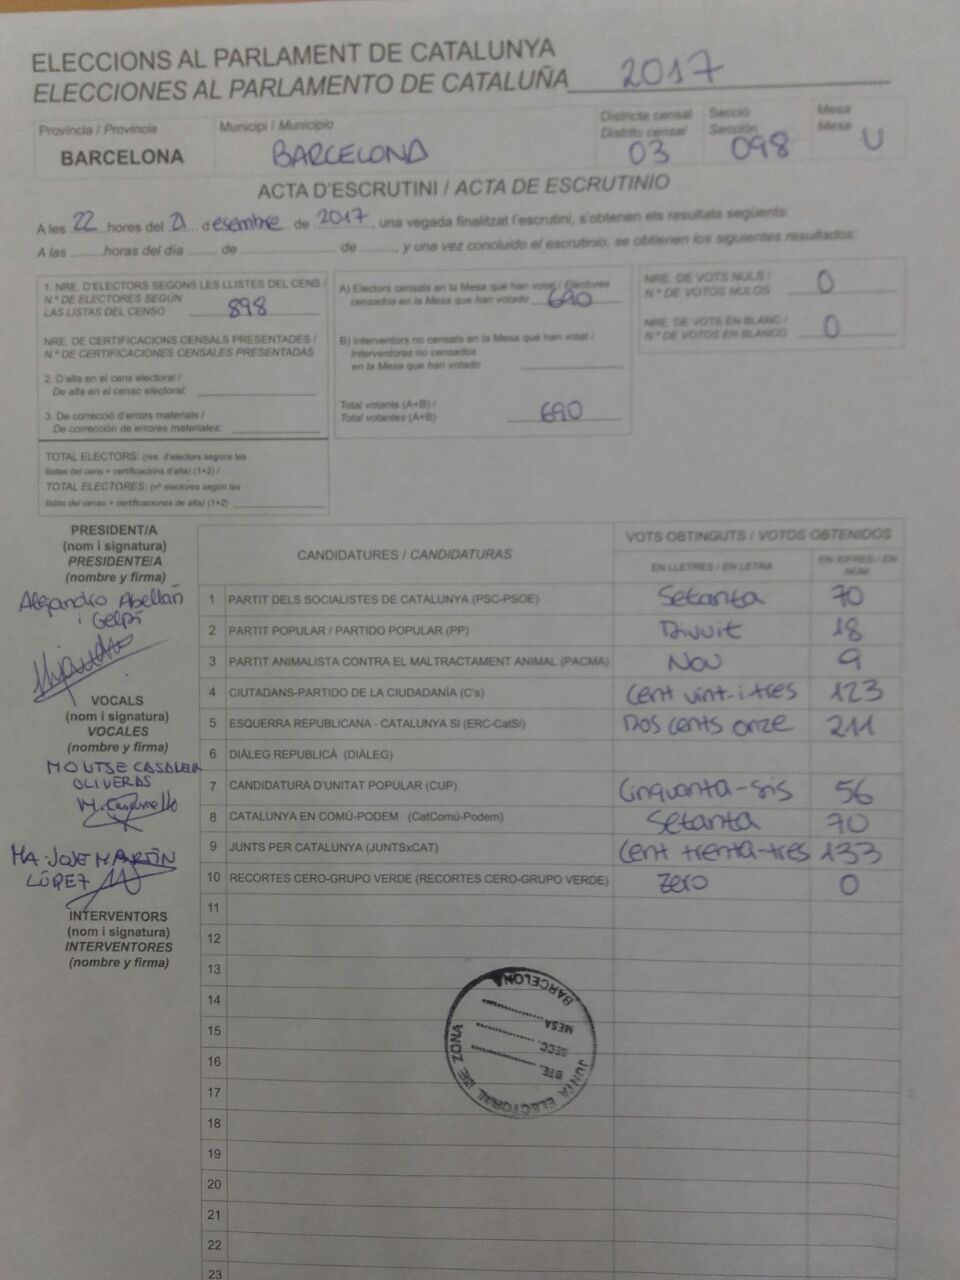 ELECCIONS AL PARLAMENT DE CATALUNYA
ELECCIONES AL PARLAMENTO DE CATALUÑA 2017
Província / Provincia
BARCELONA
Municipi / Municipio
BARCELONA
Districte censal
Distrito censal
03
Secció
Sección
098
Mesa
Mesa
U
ACTA D'ESCRUTINI / ACTA DE ESCRUTINIO
A les 22 hores del 21 desembre de 2017, una vegada finalitzat l'escrutini, s'obtenen els resultats següents:
A las ..........horas del día ......... de ............................... de ............ y una vez concluido el escrutinio, se obtienen los siguientes resultados:
1. NRE. D'ELECTORS SEGONS LES LLISTES DEL CENS /
N.º DE ELECTORES SEGÚN
LAS LISTAS DEL CENSO 898
NRE. DE CERTIFICACIONS CENSALS PRESENTADES /
N.º DE CERTIFICACIONES CENSALES PRESENTADAS
2. D'alta en el cens electoral /
De alta en el censo electoral:
3. De correcció d'errors materials /
De corrección de errores materiales:
TOTAL ELECTORS: (nre. d'electors segons les
llistes del cens + certificacions d'alta) (1+2) /
TOTAL ELECTORES: (nº electores según las
listas del censo + certificaciones de alta) (1+2)
A) Electors censats en la Mesa que han votat / Electores
censados en la Mesa que han votado 690
B) Interventors no censats en la Mesa que han votat /
Interventores no censados
en la Mesa que han votado
Total votants (A+B) /
Total votantes (A+B) 690
NRE. DE VOTS NULS /
N.º DE VOTOS NULOS 0
NRE. DE VOTS EN BLANC /
N.º DE VOTOS EN BLANCO 0
PRESIDENT/A
(nom i signatura)
PRESIDENTE/A
(nombre y firma)
Alejandro Abellán
i Gelpí
VOCALS
(nom i signatura)
VOCALES
(nombre y firma)
OLIVERAS
MA. JOSE MARTÍN
LÓPEZ
INTERVENTORS
(nom i signatura)
INTERVENTORES
(nombre y firma)
CANDIDATURES / CANDIDATURAS
VOTS OBTINGUTS / VOTOS OBTENIDOS
EN LLETRES / EN LETRA
EN XIFRES / EN NÚM.
1 PARTIT DELS SOCIALISTES DE CATALUNYA (PSC-PSOE) Setanta 70
2 PARTIT POPULAR / PARTIDO POPULAR (PP) Divuit 18
3 PARTIT ANIMALISTA CONTRA EL MALTRACTAMENT ANIMAL (PACMA) Nou 9
4 CIUTADANS-PARTIDO DE LA CIUDADANÍA (C's) Cent vint-i tres 123
5 ESQUERRA REPUBLICANA - CATALUNYA SI (ERC-CatSí) Dos cents onze 211
6 DIÀLEG REPUBLICÀ (DIÀLEG)
7 CANDIDATURA D'UNITAT POPULAR (CUP) Cinquanta-sis 56
8 CATALUNYA EN COMÚ-PODEM (CatComú-Podem) Setanta 70
9 JUNTS PER CATALUNYA (JUNTSxCAT) Cent trenta-tres 133
10 RECORTES CERO-GRUPO VERDE (RECORTES CERO-GRUPO VERDE) Zero 0
11
12
13
14
15
16
17
18
19
20
21
22
23
JUNTA ELECTORAL DE ZONA
BARCELONA
DTE.
SECC.
MESA